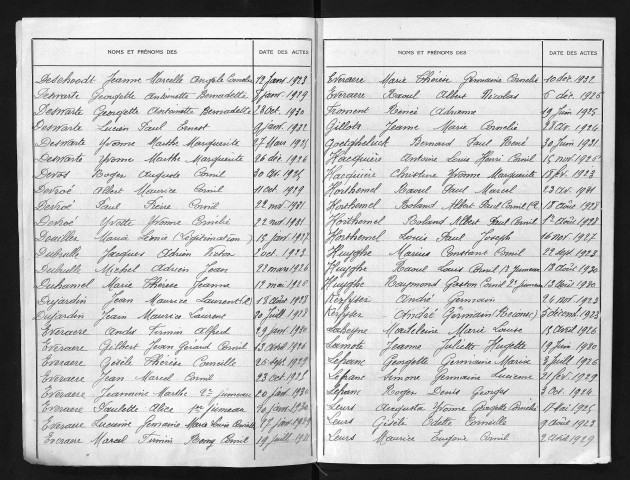 NOMS ET PRÉNOMS DES DATE DES ACTES
Deschoodt Jeanne Marcelle Angèle Cornélie 12 janv 1923
Deswarte Georgette Antoinette Bernadette janv 1929
Deswarte Georgette Antoinette Bernadette 28 Oct. 1930
Deswarte Lucien Paul Ernest 9 janv. 1932
Deswarte Yvonne Marthe Marguerite 27 Mars 1925
Deswarte Yvonne Marthe Marguerite 26 déc. 1926
Devos Roger Auguste Cornil 30 oct. 1925
Devroé Albert Maurice Cornil 11 oct. 1929
Devroé Paul Cornil 22 nov. 1931
Devroé Yvette Yvonne Cornélie 22 nov. 1931
Maria (Légitimation) 15 janv. 1927
Dubrulle Jacques Adrien oct. 1923
Dubrulle Michel Adrien Jean 22 mars 1926
Duhamel Marie Thérèse Jeanne 12 mai 1920
Dujardin Jean Maurice Laurent 18 août 1928
Dujardin Jean Maurice Laurent 30 juill 1928
Everaere André Firmin Alfred 29 janv 1930
Everaere Gilbert Jean Girard Cornil 13 avril 1926
Everaere Gisèle Thérèse Corneille 26 sept. 1929
Everaere Jean Marcel Cornil 23 oct. 1925
Everaere Jeannine Marthe 2e jumeau 20 janv. 1930
Everaere Paulette Alice 1er jumeau 20 janv. 1930
Everaere Lucienne Jeannine Marie Louise Corneille 27 janv. 1929
Everaere Marcel Firmin Rémy Cornil 19 juill.
NOMS ET PRÉNOMS DES DATE DES ACTES
Everaere Marie Thérèse Germaine Cornélie 10 fév. 1932
Everaere Raoul Albert Nicolas 6 déc. 1926
Froment Renée Adrienne 19 juin 1925
Gillots Jeanne Marie Cornélie 28 avr. 1924
Goetgheluck Bernard Paul René 30 juin 1931
Hacquière Antoine Louis Henri Cornil 15 nov. 1926
Hacquière Christiane Yvonne Marguerite 18 fév. 1923
Horthemel Raoul Paul Marcel 23 oct. 1931
Horthemel Roland Albert Paul Cornil 18 août 1928
Horthemel Roland Albert Paul Cornil août 1928
Horthemel Louis Paul Joseph 16 nov. 1927
Huyghe Marius Constant Cornil 22 sept. 1923
Huyghe Raoul Louis Cornil 1er jumeau 13 août 1930
Huyghe Raymond Gaston Cornil 2e jumeau 13 août 1930
Kerfyser André Germain 26 nov. 1923
Kerfyser André Germain 5 décemb. 1923
Labeyne Madeleine Marie Louise 15 avril 1926
Lamote Jeanne Juliette Hugette 13 juin 1930
Lefranc Georgette Germaine Maria 3 juill 1926
Lefranc Simone Germaine Lucienne 21 fév. 1929
Lefranc Roger Denis Georges 3 oct. 1924
Leurs Augusta Yvonne Georgette Cornélie 17 mai 1925
Leurs Gisèle Odette Corneille 9 août 1923
Leurs Maurice Eugène Cornil 2 avril 1929